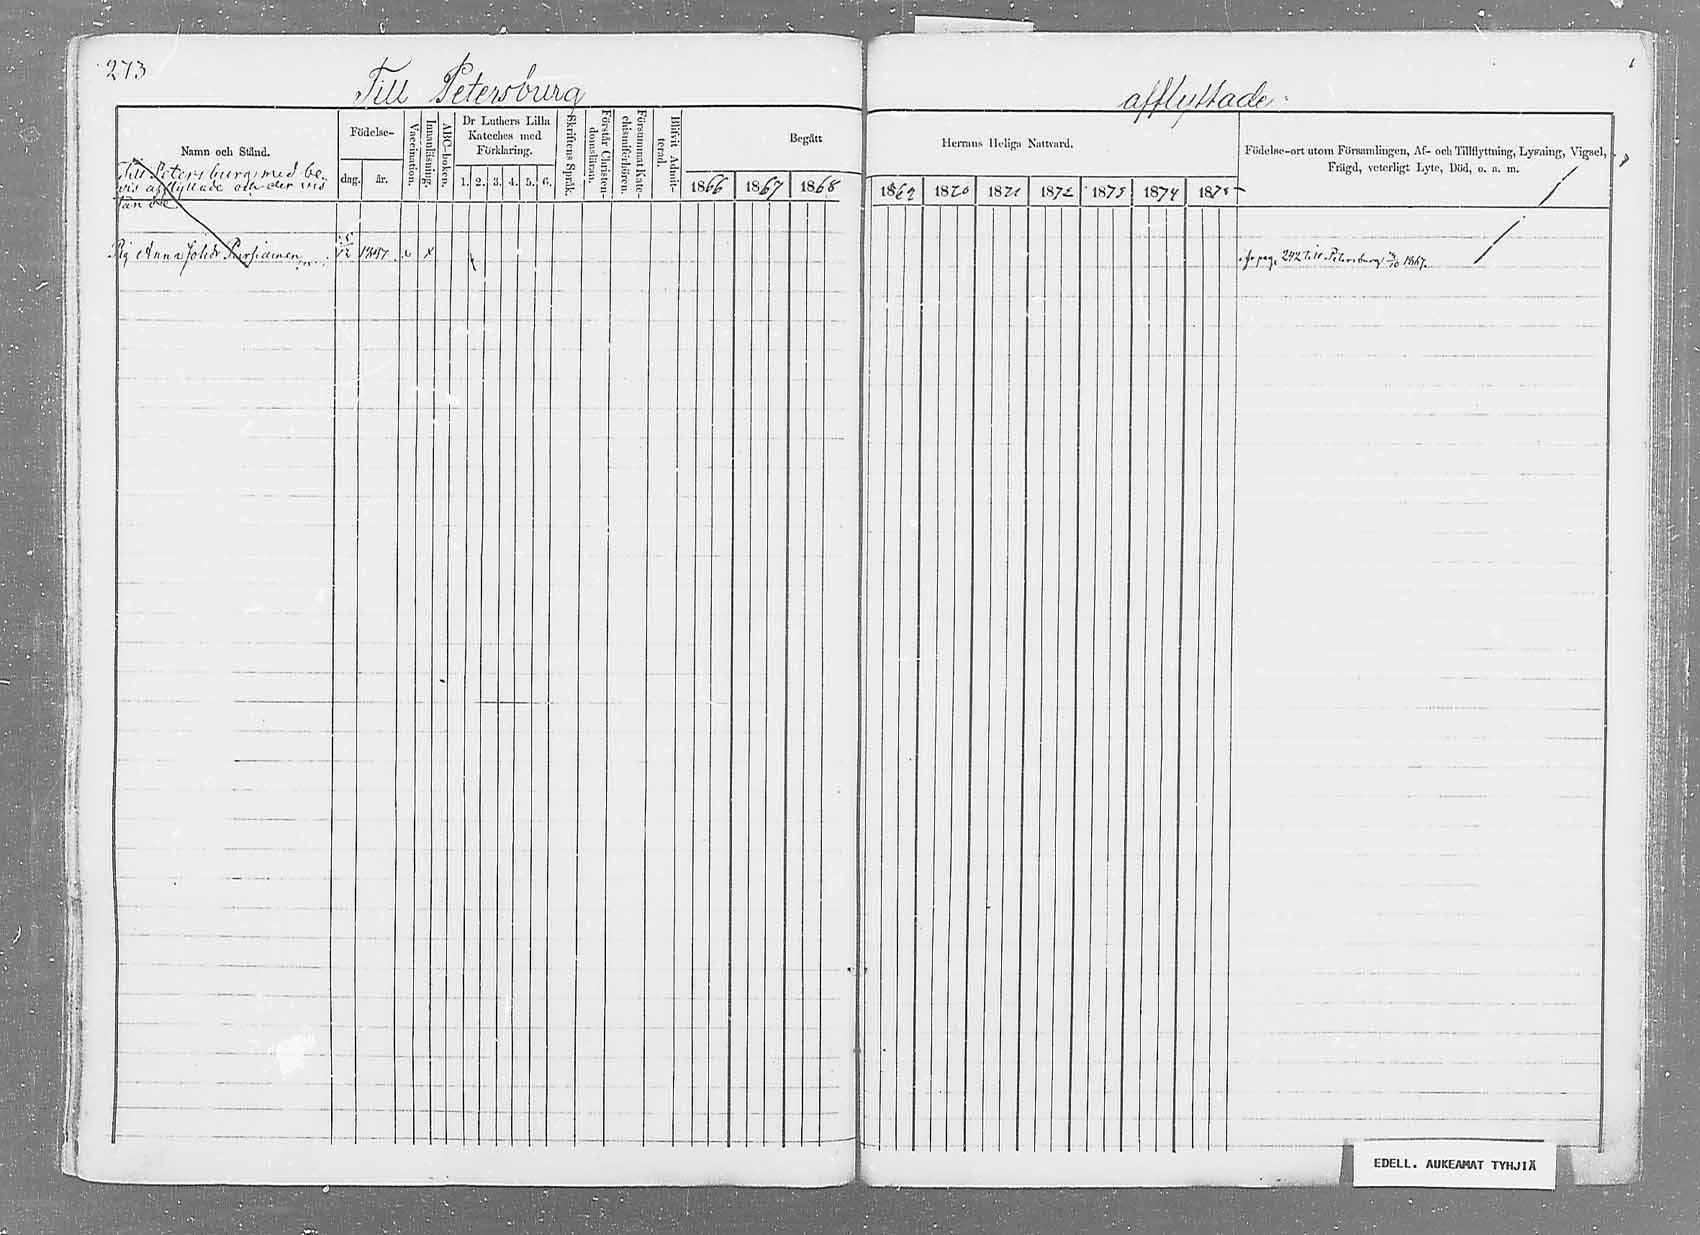 273
Till Petersburg afflyttade
Namn och Stånd.
Födelse-
dag. år.
Vaccination.
Innanläsning.
ABC-boken.
Dr Luthers Lilla
Kateches med
Förklaring.
1. 2. 3. 4. 5. 6.
Skriftens Språk.
Förstår Christen-
domsläran.
Försummat Kate-
chismiförhören.
Blifvit Admit-
terad.
Begått
1866 1867 1868
Herrans Heliga Nattvard.
1869 1870 1871 1872 1873 1874 1875
Födelse-ort utom Församlingen, Af- och Tillflyttning, Lysning, Vigsel,
Frägd, veterligt Lyte, Död, o. a. m.
Till Petersburg med be-
vis afflyttade och der vid
Pig Anna Johdr 12 1857 x x
fr pag. 242 Till Petersburg 1867.
EDELL. AUKEAMAT TYHJIÄ